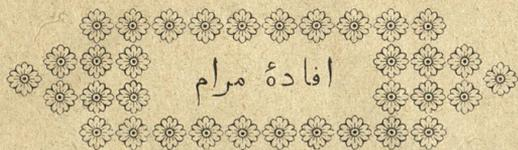 افادۀ مرام